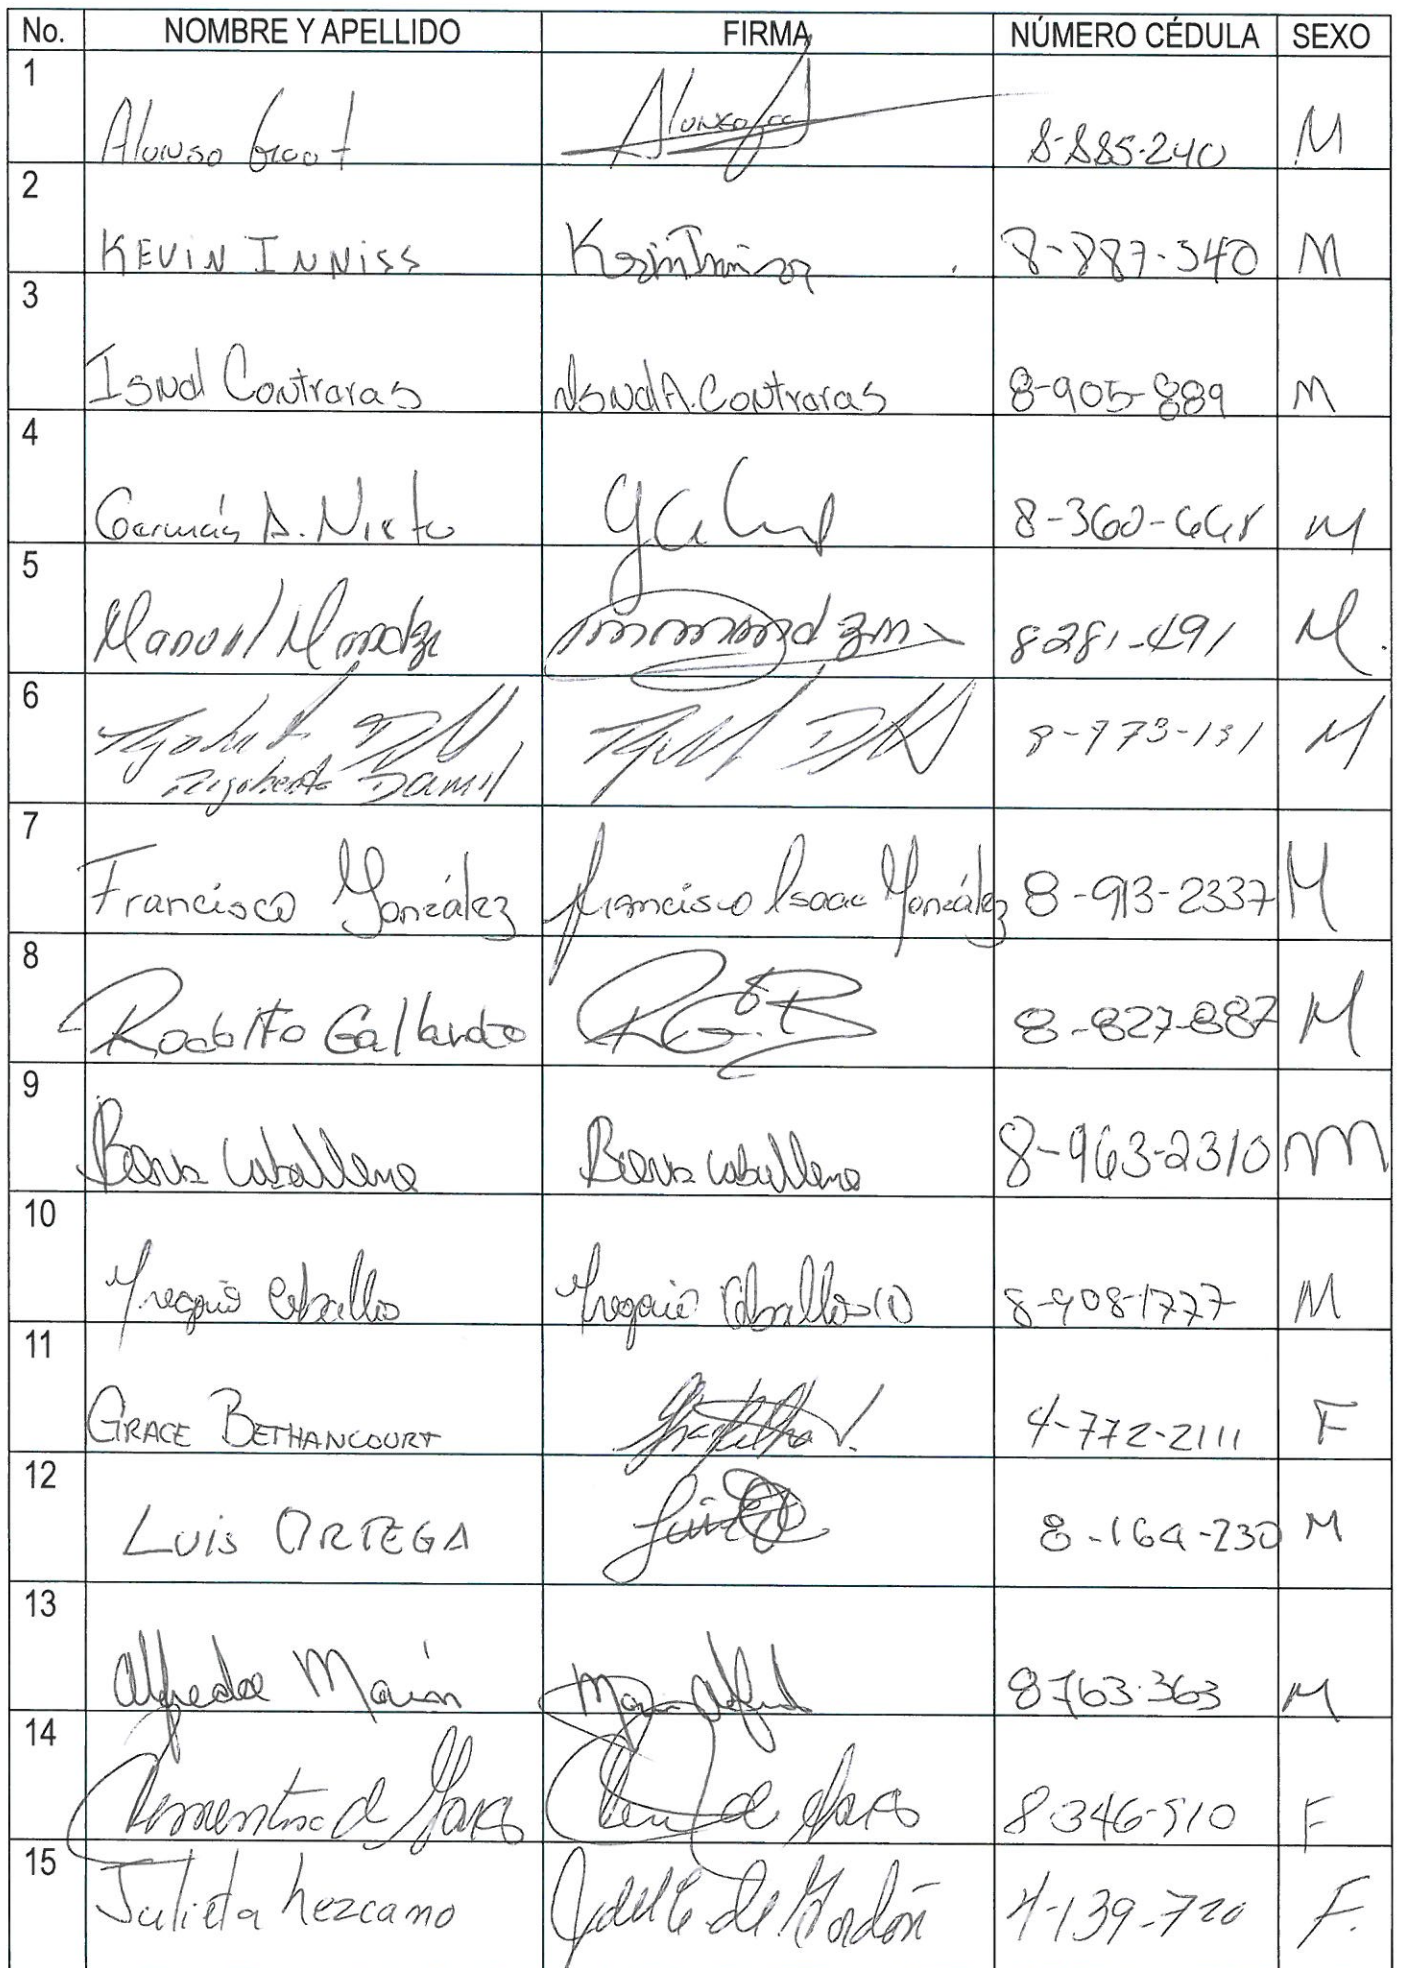 No. NOMBRE Y APELLIDO FIRMA NÚMERO CÉDULA SEXO
1 Alonso Groot Alonso 8-885-240 M
2 KEVIN INNISS Kevin Inniss 8-887-340 M
3 Contraras A. Contraras 8-905-889 M
4 Germán A. Nieto 8-360-668 M
5 Manuel 8281-491 M.
6 Rigoberto Rigoberto 8-773-131 M
7 Francisco González Francisco Isaac González 8-913-2337 M
8 Rodolfo Gallardo RGB 8-827-887 M
9 Caballero Caballero 8-963-2310 M
10 Gregorio Caballero Gregorio Caballero 8-908-1777 M
11 GRACE BETHANCOURT 4-772-2111 F
12 LUIS ORTEGA Luis 8-164-230 M
13 Alfredo Marín 8763-363 M
14 Clementina de de 8-346-510 F
15 Julieta Lezcano de Gordón 4-139-720 F.